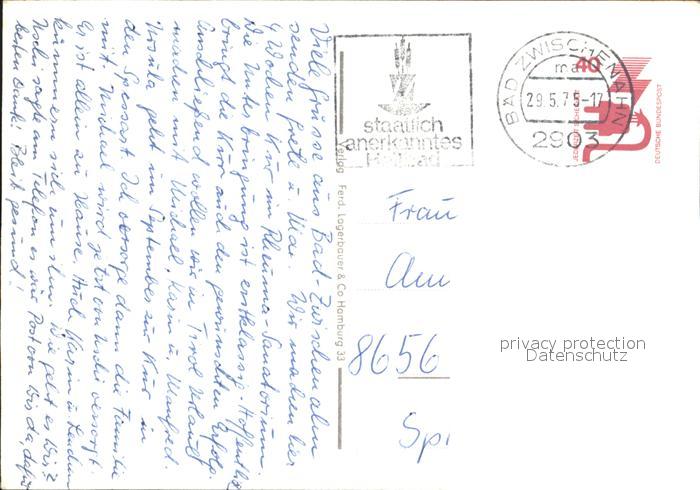 Viele Grüsse aus Bad-Zwischenahn
senden Grete u. Max. Wir machen hier
4 Wochen Kur im Rheuma-Sanatorium.
Die Unterbringung ist erstklassig. Hoffentlich
bringt die Kur auch den gewünschten Erfolg.
Anschließend wollen wir in Tirol Urlaub
machen mit Michael, Karin u. Manfred.
Ursula geht im September zur Kur in
den Spessart. Ich versorge dann die Familie
mit. Michael wird jetzt von Uschi versorgt.
Er ist allein zu Hause. Auch Karin u.
kümmern sich um ihn. Wie geht es Dir?
Uschi sagte am Telefon es sei Post von Dir da, dafür
besten Dank! Bleib gesund!
staatlich
anerkanntes
Heilbad
BAD ZWISCHENAHN
ma
29.5.75-17
2903
40
JEDERZEIT SICHERHEIT
DEUTSCHE BUNDESPOST
Verlag Ferd. Lagerbauer & Co Hamburg 33
Frau
Am
8656
privacy protection
Datenschutz